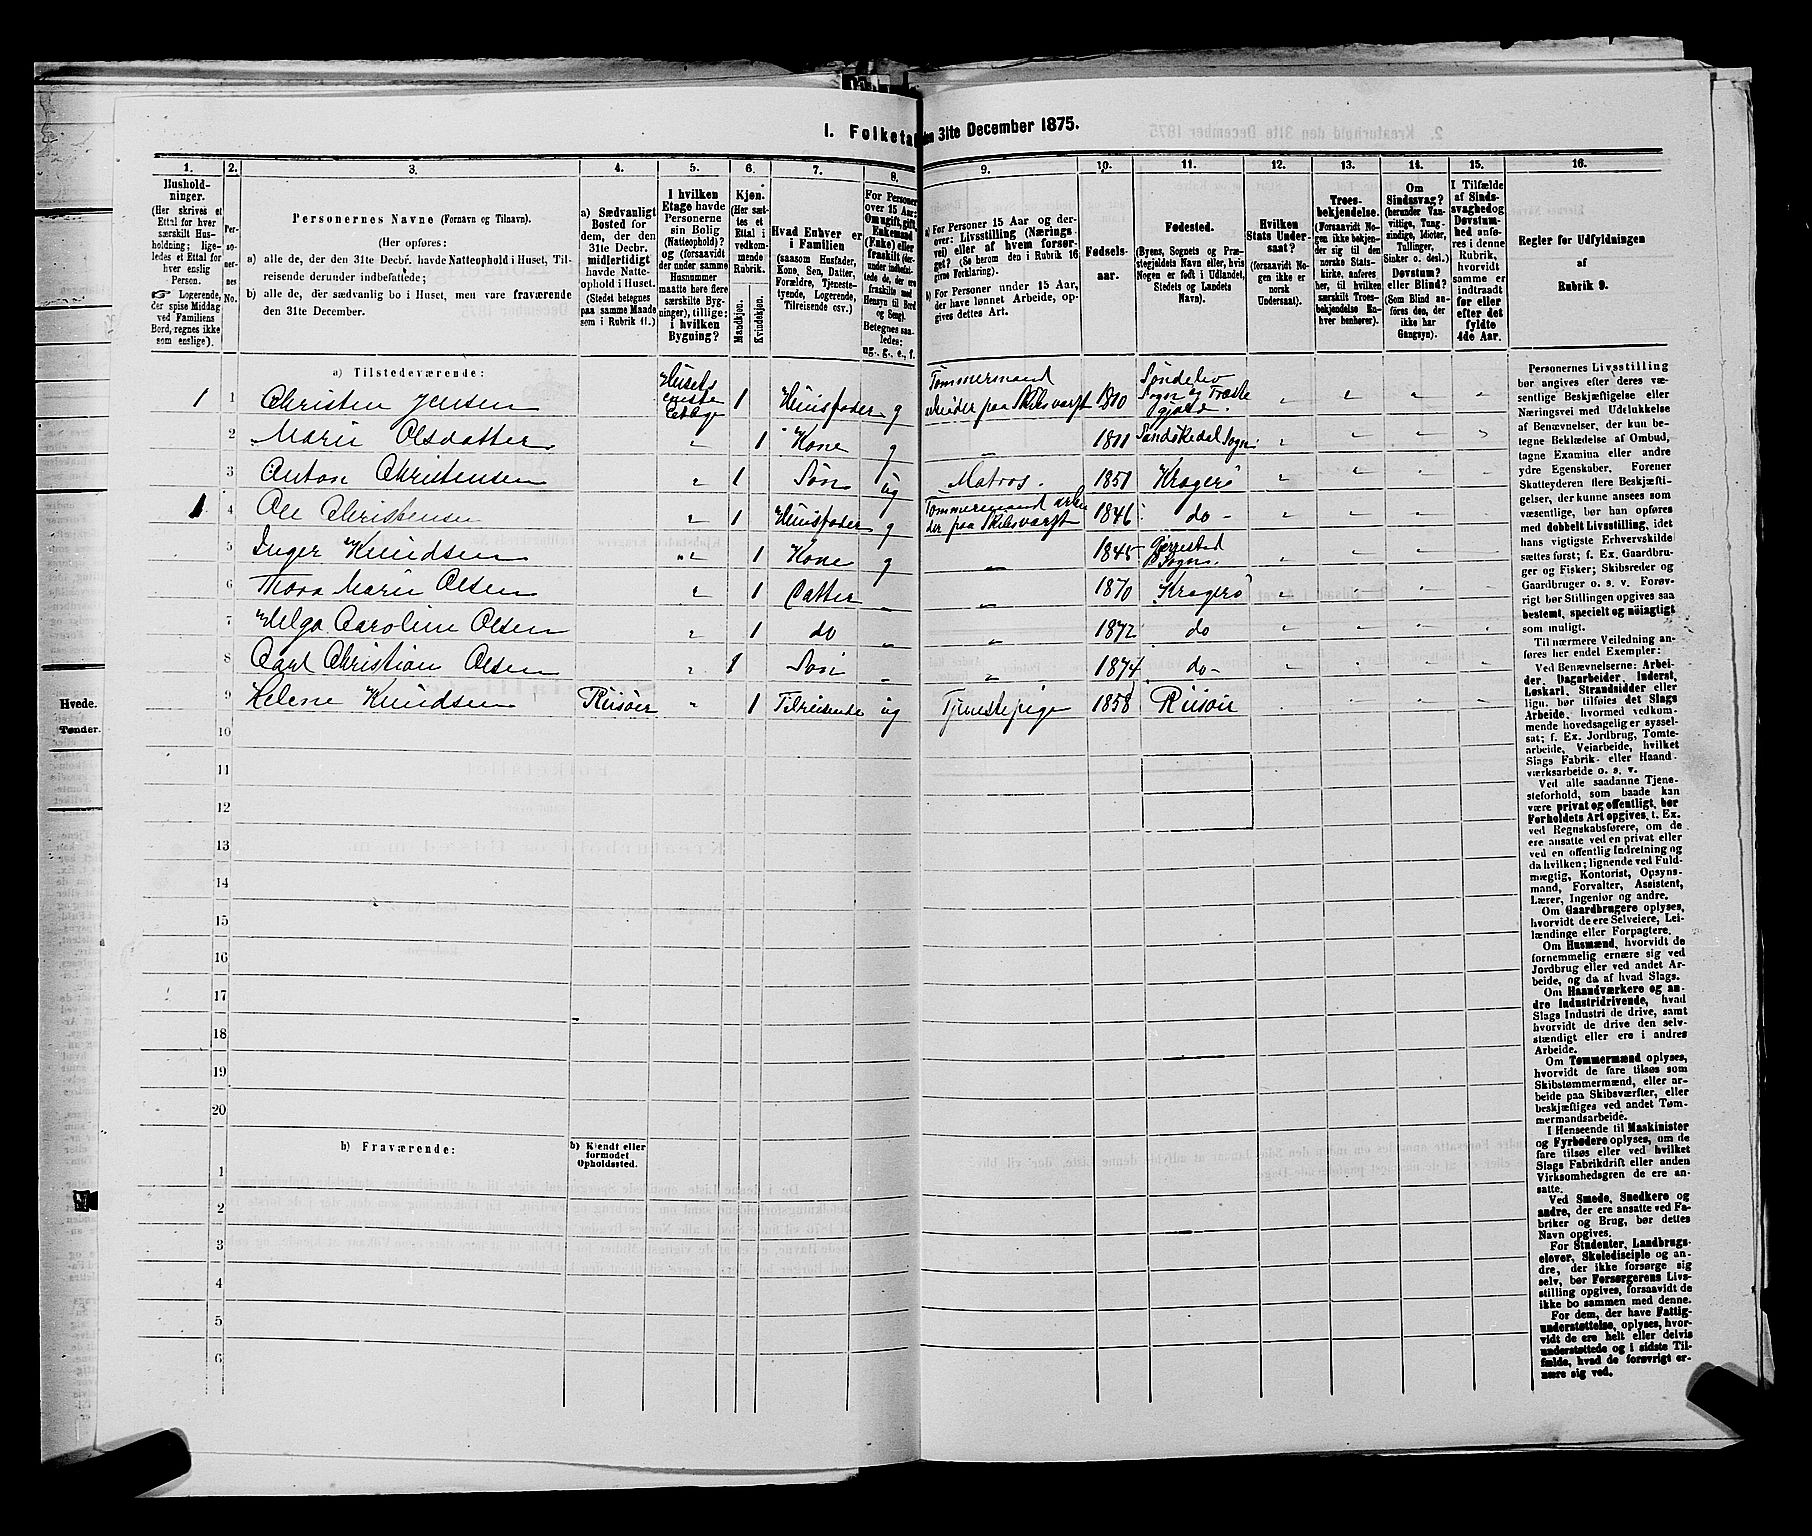 1. Folketa
en 31te December 1875.
1.
2.
3.
4.
5.
6.
7.
8.
9.
10.
11.
12.
13.
14.
15.
16.
Hushold-
ninger.
(Her skrives et
Ettal for hver
særskilt Hus-
holdning; lige-
ledes et Ettal for
hver enslig
Person.
☞ Logerende,
der spise Middag
ved Familiens
Bord, regnes ikke
som enslige).
Per-
so-
ner-
nes
No.
Personernes Navne (Fornavn og Tilnavn).
(Her opføres:
a) alle de, der den 31te Decbr. havde Natteophold i Huset, Til-
reisende derunder indbefattede;
b) alle de, der sædvanlig bo i Huset, men vare fraværende
den 31te December.
a) Sædvanligt
Bosted for
dem, der den
31te Decbr.
midlertidigt
havde Natte-
ophold i Huset.
(Stedet betegnes
paa samme Maade
som i Rubrik 11.)
I hvilken
Etage havde
Personerne
sin Bolig
(Natteophold)?
og (forsaavidt
der under samme
Husnummer
maatte høre flere
særskilte Byg-
ninger), tillige:
i hvilken
Bygning?
Kjøn.
(Her sæt-
tes et
Ettal i
vedkom-
mende
Rubrik.
Mandkjøn.
Kvindekjøn.
Hvad Enhver er
i Familien
(saasom Husfader,
Kone, Søn, Datter,
Forældre, Tjeneste-
tyende, Logerende,
Tilreisende osv.)
For Personer
over 15 Aar:
Om ugift, gift,
Enkemand
(Enke) eller
fraskilt
Hensyn til Bord
og Seng).
Betegnes saa-
ledes:
ug., g., e., f.
a) For Personer 15 Aar og der-
over: Livsstilling (Nærings-
vei) eller af hvem forsør-
get? (Se herom den i Rubrik 16
givne Forklaring).
b) For Personer under 15 Aar,
der have lønnet Arbeide, op-
gives dettes Art.
Fødsels-
aar.
Fødested.
(Byens, Sognets og Præ-
stegjeldets Navn eller, hvis
Nogen er født i Udlandet,
Stedets og Landets
Navn).
Hvilken
Stats Under-
saat?
(forsaavidt No-
gen ikke er
norsk
Undersaat).
Troes-
bekjendelse.
(Forsaavidt No-
gen ikke bekjen-
der sig til den
norske Stats-
kirke, anføres
her, til hvilken
særskilt Troes-
bekjendelse En-
hver henhører).
Om
Sindssvag?
(herunder Van-
vittige, Tung-
sindige, Idioter,
Tullinger,
Sinker o. desl.)
Døvstum?
eller Blind?
(Som Blind an-
føres den, der
ikke har
Gangsyn).
I Tilfælde
af Sinds-
svaghed og
Døvstum-
hed anfø-
res i denne
Rubrik,
hvorvidt
samme er
indtraadt
før eller
efter det
fyldte
4de Aar.
Regler for Udfyldningen
af
Rubrik 9.
a) Tilstedeværende:
1 1 Christen Jensen Husets første Etage 1 Huusfader g Tømmermand arbeider paa Skibsværft 1810 Søndelev Sogn og Præstegjeld.
2 Marie Olsdatter " 1 Kone g " 1811 Sandøkedal Sogn
3 Anton Christensen " 1 Søn ug Matros. 1851 Kragerø
1 4 Ole Christensen " 1 Huusfader g Tømmermand arbeider paa Skibsværft 1846 do-
5 Inger Knudsen " 1 Kone g " 1845 Gjerrestad Sogn.
6 Thora Marie Olsen " 1 Datter " " 1870 Kragerø
7 Helga Caroline Olsen " 1 do " " 1872 do
8 Carl Christian Olsen " 1 Søn " " 1874 do-
9 Helene Knudsen Riisøer " 1 Tilreisende ug Tjenestepige 1858 Riisøir
10
11
12
13
14
15
16
17
18
19
20
b) Fraværende:
b) Kjendt eller
formodet
Opholdssted.
1
2
3
4
5
6
Personernes Livsstilling
bør angives efter deres væ-
sentlige Beskjæftigelse eller
Næringsvei med Udelukkelse
af Benævnelser, der kun be-
tegne Beklædelse af Ombud,
tagne Examina eller andre
ydre Egenskaber. Forener
Skatteyderen flere Beskjæfti-
gelser, der kunne ansees som
væsentlige, bør han opføres
med dobbelt Livsstilling, idet
hans vigtigste Erhvervskilde
sættes først; f. Ex. Gaardbru-
ger og Fisker; Skibsreder og
Gaardbruger o. s. v. Forøv-
rigt bør Stillingen opgives saa
bestemt, specielt og nøiagtigt
som muligt.
Til nærmere Veiledning an-
føres her endel Exempler:
Ved Benævnelserne: Arbei-
der, Dagarbeider, Inderst,
Løskarl, Strandsidder eller
lign. bør tilføies det Slags
Arbeide, hvormed vedkom-
mende hovedsagelig er syssel-
sat; f. Ex. Jordbrug, Tomte-
arbeide, Veiarbeide, hvilket
Slags Fabrik- eller Haand-
værksarbeide o. s. v.
Ved alle saadanne Tjene-
steforhold, som baade kan
være privat og offentligt, bør
Forholdets Art opgives, t. Ex.
ved Regnskabsførere, om de
ere ansatte ved en privat eller
ved en offentlig Indretning og
da hvilken; lignende ved Fuld-
mægtig, Kontorist, Opsyns-
mand, Forvalter, Assistent,
Lærer, Ingeniør og andre.
Om Gaardbrugere oplyses,
hvorvidt de ere Selveiere, Lei-
lændinge eller Forpagtere.
Om Husmænd, hvorvidt de
fornemmelig ernære sig ved
Jordbrug eller ved andet Ar-
beide, og da af hvad Slags.
Om Haandværkere og an-
dre Industridrivende, hvad
Slags Industri de drive, samt
hvorvidt de drive den selv-
stændigt eller ere i andres
Arbeide.
Om Tømmermænd oplyses,
hvorvidt de fare tilsøs som
Skibstømmermænd, eller ar-
beide paa Skibsværfter, eller
beskjæftiges ved andet Tøm-
mermandsarbeide.
I Henseende til Maskinister
og Fyrbødere oplyses, om de
fare tilsøs eller ved hvilket
Slags Fabrikdrift eller anden
Virksomhedsgren de ere an-
satte.
Ved Smede, Snedkere og
andre, der ere ansatte ved Fa-
briker og Brug, bør dettes
Navn opgives.
For Studenter, Landbrugs-
elever, Skoledisciple og an-
dre, der ikke forsørge sig
selv, bør Forsørgerens Livs-
stilling opgives, forsaavidt de
ikke bo sammen med denne.
For dem, der have Fattig-
understøttelse, oplyses, hvor-
vidt de ere helt eller delvis
understøttede og i sidste Til-
fælde, hvad de forøvrigt er-
nære sig ved.
Hvede.
Tønder.